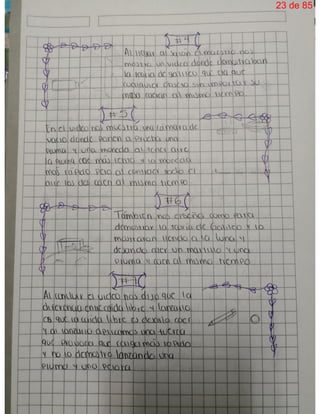 23 de 85
#4
Al llegar al salon el maestro nos
mostro un video donde demostraban
la teoria de galileo que era que
cualquier objeto sin importar su
masa caeran al mismo tiempo
#5
En el video nos muestra una camara de
vacio donde ponen a prueba una
pluma y una moneda al tener aire
la pluma cae mas lento y la moneda
mas rapido pero al cambiar todo el
aire los dos caen al mismo tiempo
#6
Tambien nos enseña como para
demostrar la teoria de Galileo
mostraron llendo a la luna y
dejando caer un martillo y una
pluma y caen al mismo tiempo
#7
Al concluir el video nos dijo que la
diferencia entre caida libre y lanzarlo
es que la caida libre es dejarlo caer
y al lanzarlo aplicamos una fuerza
que provoca que caiga mas rapido
y no lo demostro lanzando una
pluma y una pelota